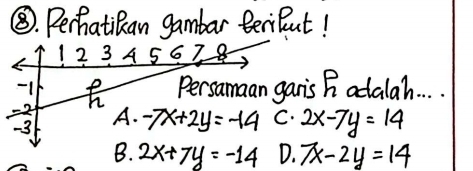 ⑧. Perhatikan gambar berikut !
1 2 3 4 5 6 7 8
-1
-2
-3
h
Persamaan garis h adalah....
A. -7x+2y = -14 C. 2x-7y = 14
B. 2x+7y = -14 D. 7x-2y = 14